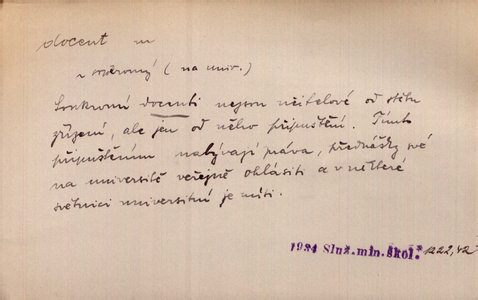 docent m
~ soukromý (na univ.)
Soukromí docenti nejsou učitelové od státu
zřízení, ale jen od něho připuštění. Tímto
připuštěním nabývají práva, přednášky své
na universitě veřejně ohlásiti a v některé
světnici universitní je míti.
1934 Služ. min. škol. 1222,42